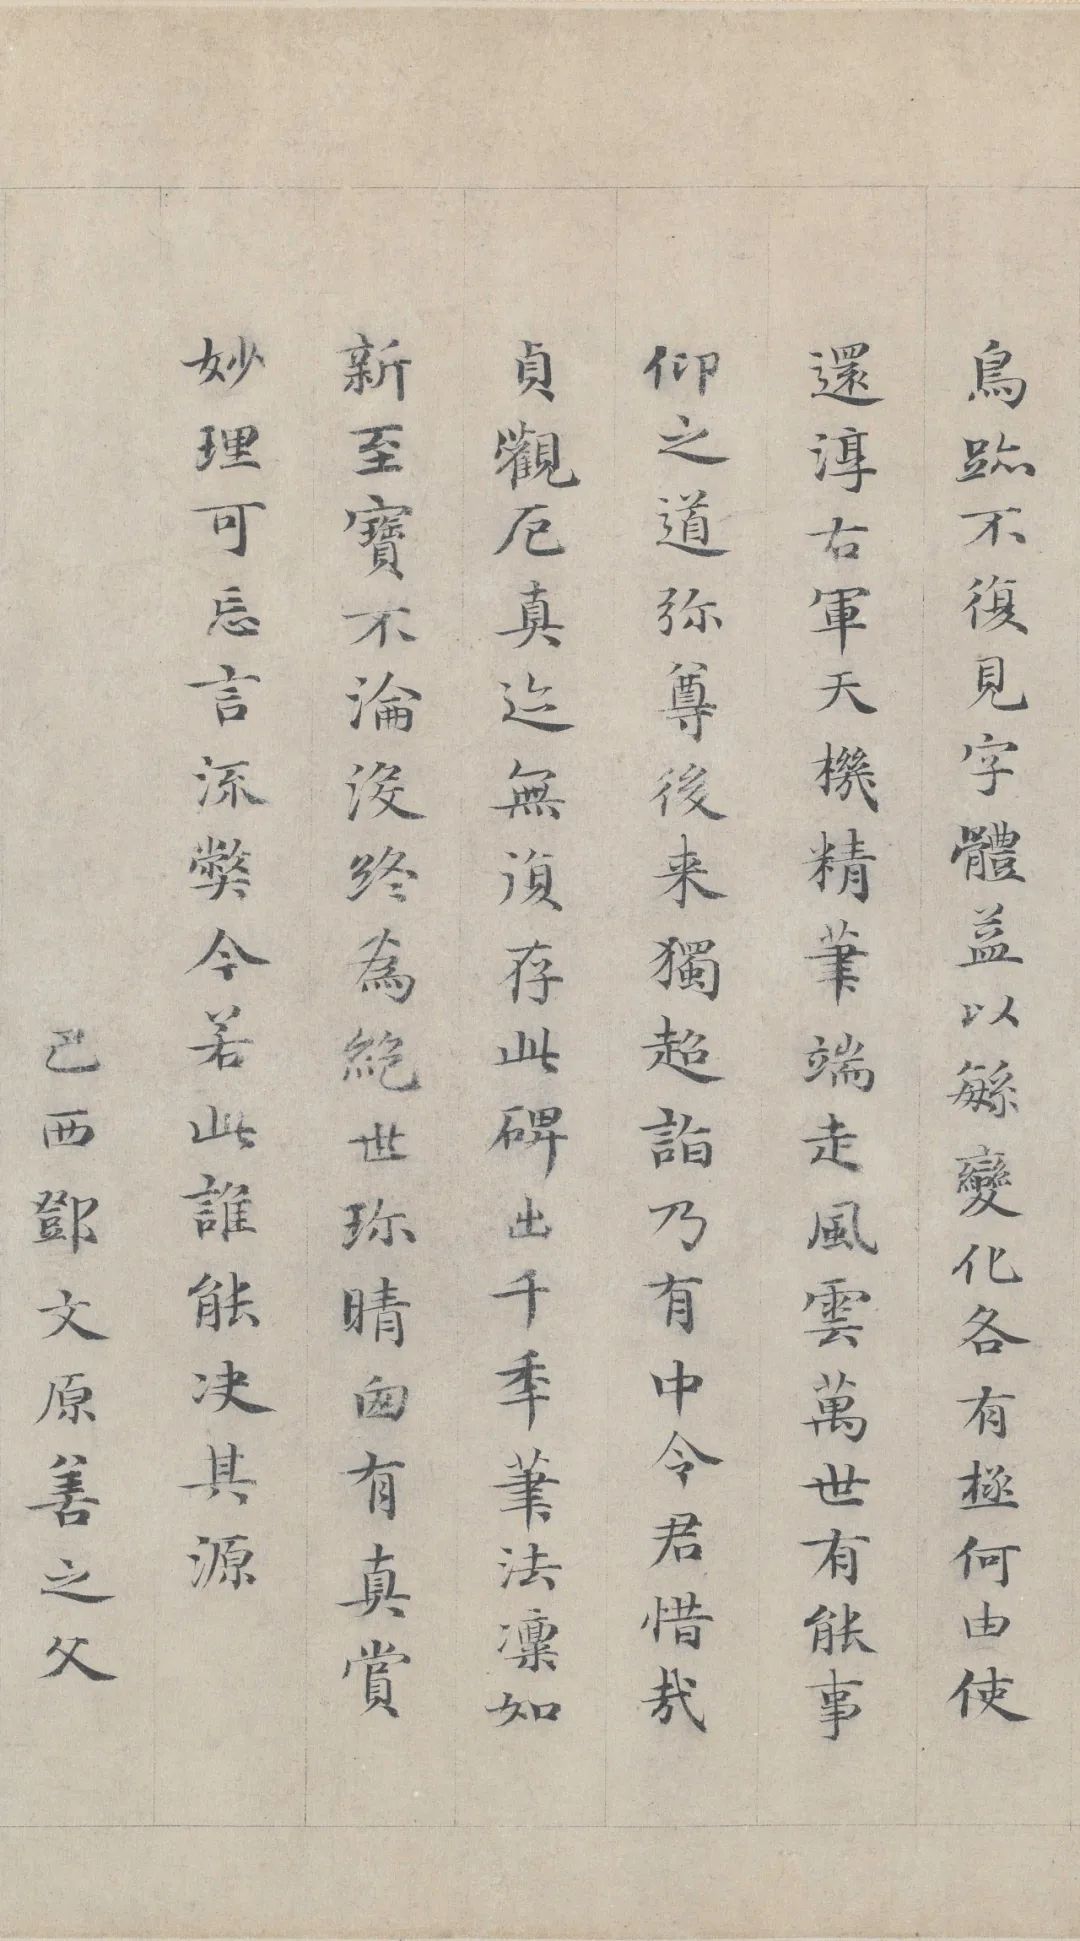 鳥跡不復見字體益以緐變化各有極何由使
還淳右軍天機精筆端走風雲萬世有能事
仰之道弥尊後来獨超詣乃有中令君惜哉
貞觀厄真迹無湏存此碑出千秊筆法凜如
新至寶不淪没終為絶世珎晴囱有真賞
妙理可忘言流弊今若此誰能决其源
巴西鄧文原善之父